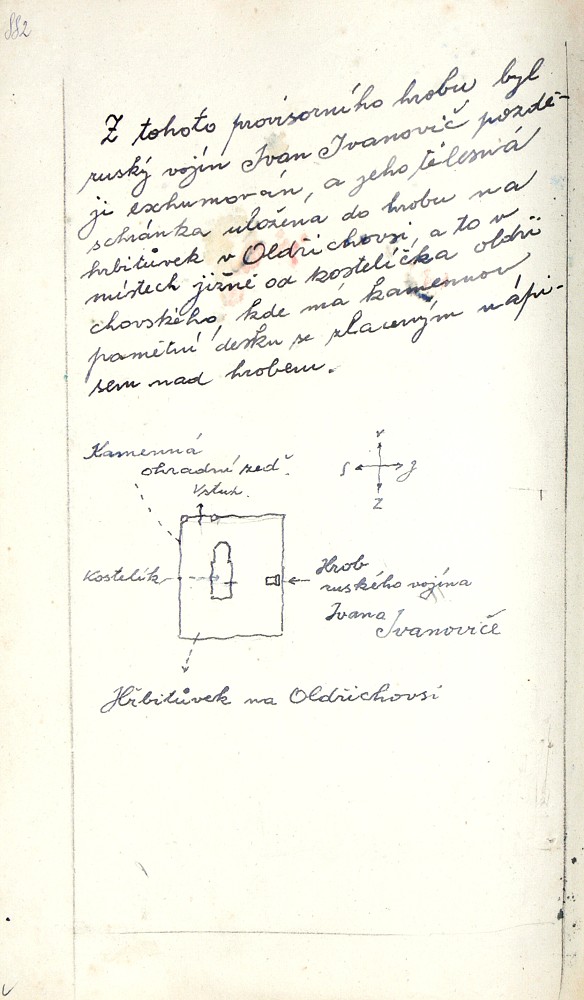 882
Z tohoto provisorního hrobu byl
ruský vojín Ivan Ivanovič pozdě-
ji exhumován, a jeho tělesná
schránka uložena do hrobu na
hrbitůvek v Oldřichovsi, a to v
místech jižně od kostelíčka oldři
chovského, kde má kamennou
pamětní desku se zlaceným nápi-
sem nad hrobem.
Kamenná
ohradní zeď.
Vstup.
V
S J
Z
Kostelík
Hrob
ruského vojína
Ivana
Ivanoviče
Hřbitůvek na Oldřichovsi